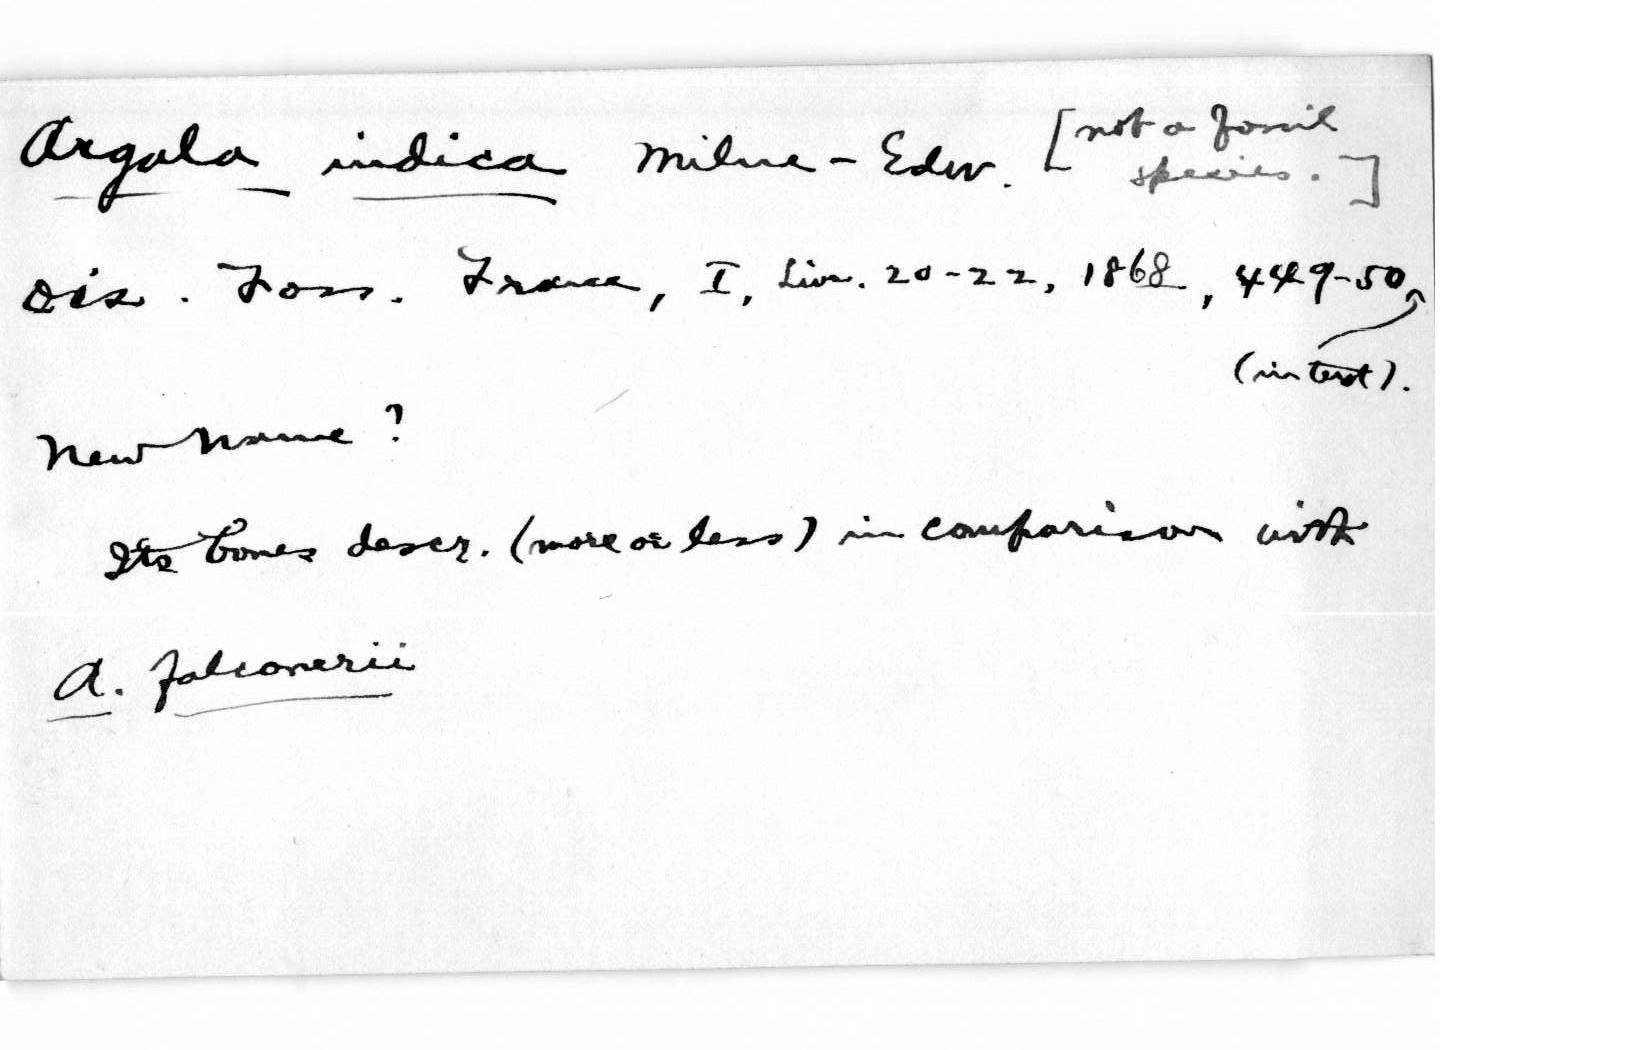 Argala indica Milne-Edw. [not a fossil
species.]
Ois. Foss. France, I, Livr. 20-22, 1868, 449-50
(in text).
New Name?
Its bones descr. (more or less) in comparison with
A. falconerii